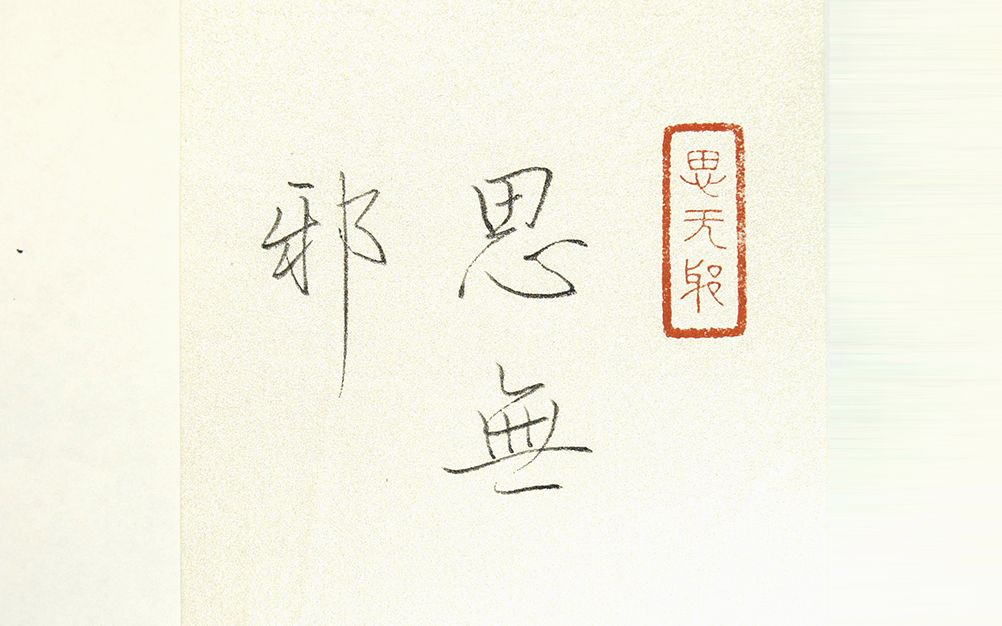 思无邪
思無
邪